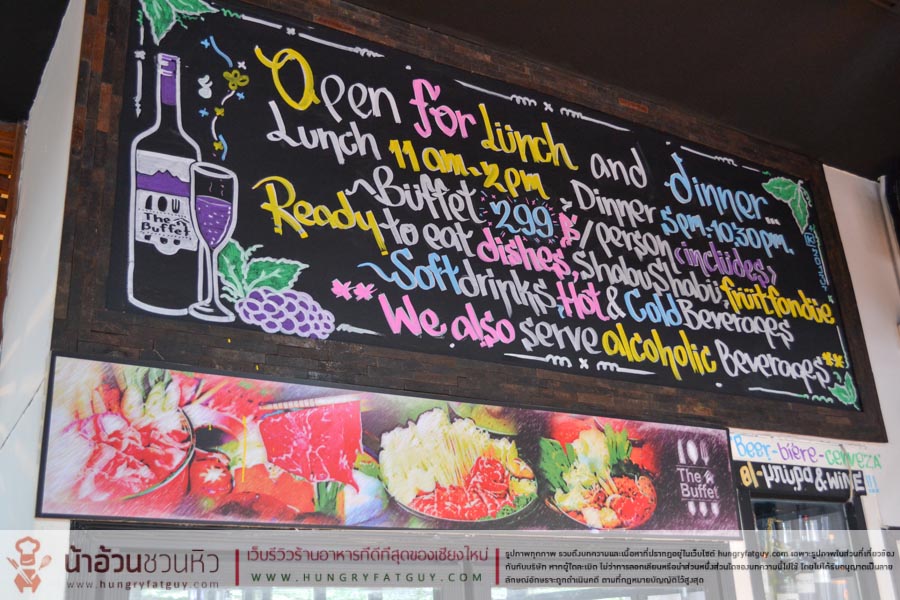 Open for Lünch and dinner...
Lunch 11am-2pm Dinner 5pm-10:30pm.
~Büffet 299 ฿/person <includes>
Ready to eat dishes, shabushabu, früit fondüe
~Soft drinks, Hot & Cold Beverages
**We also serve alcoholic Beverages**
The
Buffet
The
Buffet
Beer-bière-cerveza
& WiNE!!!
น้าอ้วนชวนหิว
www.hungryfatguy.com
เว็บรีวิวร้านอาหารที่ดีที่สุดของเชียงใหม่
WWW.HUNGRYFATGUY.COM
รูปภาพทุกภาพ รวมถึงบทความและเนื้อหาที่ปรากฏอยู่ในเว็บไซต์ hungryfatguy.com เฉพาะรูปภาพในส่วนที่เกี่ยวข้อง
กับทีมบริษัท หากผู้ใดละเมิด ไม่ว่าการลอกเลียนหรือนำส่วนหนึ่งส่วนใดของบทความนี้ไปใช้ โดยไม่ได้รับอนุญาตเป็นลาย
ลักษณ์อักษรจะถูกดำเนินคดี ตามที่กฎหมายบัญญัติไว้สูงสุด